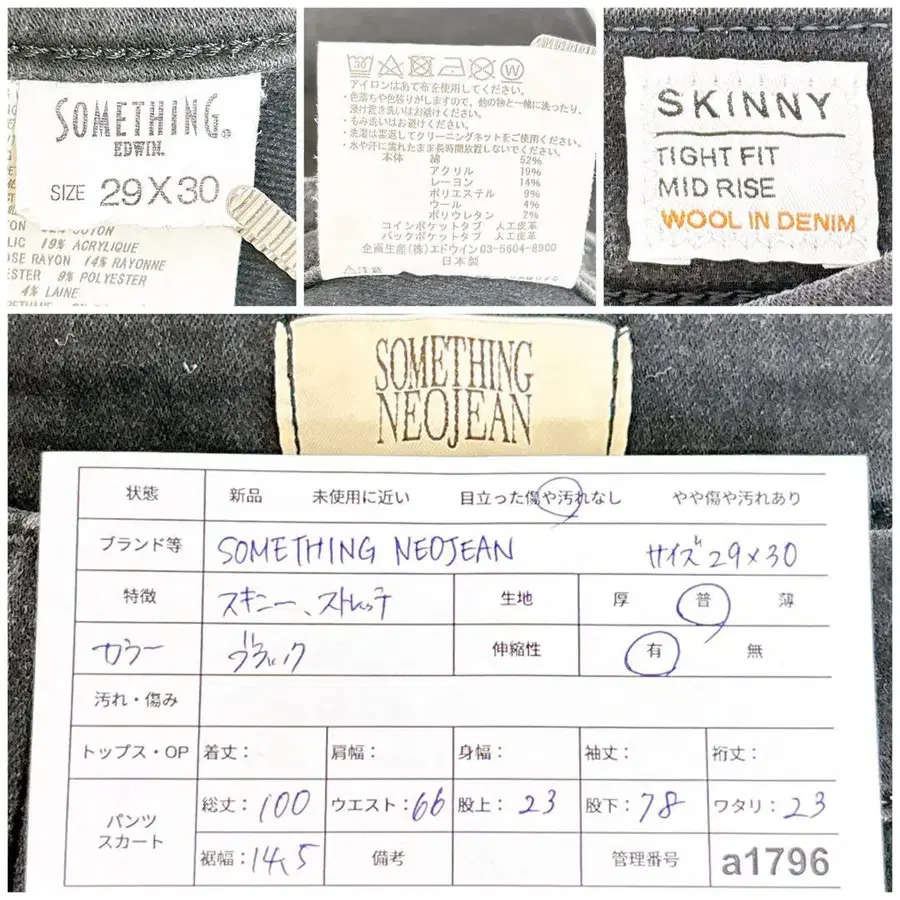 SOMETHING®
EDWIN®
SIZE 29X30
LIC 19% ACRYLIQUE
OSE RAYON 14% RAYONNE
ESTER 9% POLYESTER
4% LAINE
アイロンはあて布を使用してください。
・色落ちや色移りがしますので、他の物と一緒に洗ったり、
漬け置き洗いはお避けください。
・もみ洗いはお避けください。
・洗濯は裏返してクリーニングネットをご使用ください。
・水や汗に濡れたまま長時間放置しないでください。
本体 綿 52%
アクリル 19%
レーヨン 14%
ポリエステル 9%
ウール 4%
ポリウレタン 2%
コインポケットタブ 人工皮革
バックポケットタブ 人工皮革
企画生産(株)エドウイン 03-5604-8900
日本製
SKINNY
TIGHT FIT
MID RISE
WOOL IN DENIM
SOMETHING
NEOJEAN
状態 新品 未使用に近い 目立った傷や汚れなし やや傷や汚れあり
ブランド等 SOMETHING NEOJEAN サイズ 29×30
特徴 スキニー、ストレッチ 生地 厚 普 薄
カラー ブラック 伸縮性 有 無
汚れ・傷み
トップス・OP 着丈： 肩幅： 身幅： 袖丈： 裄丈：
パンツ スカート 総丈：100 ウエスト：66 股上：23 股下：78 ワタリ：23
裾幅：14.5 備考 管理番号 a1796